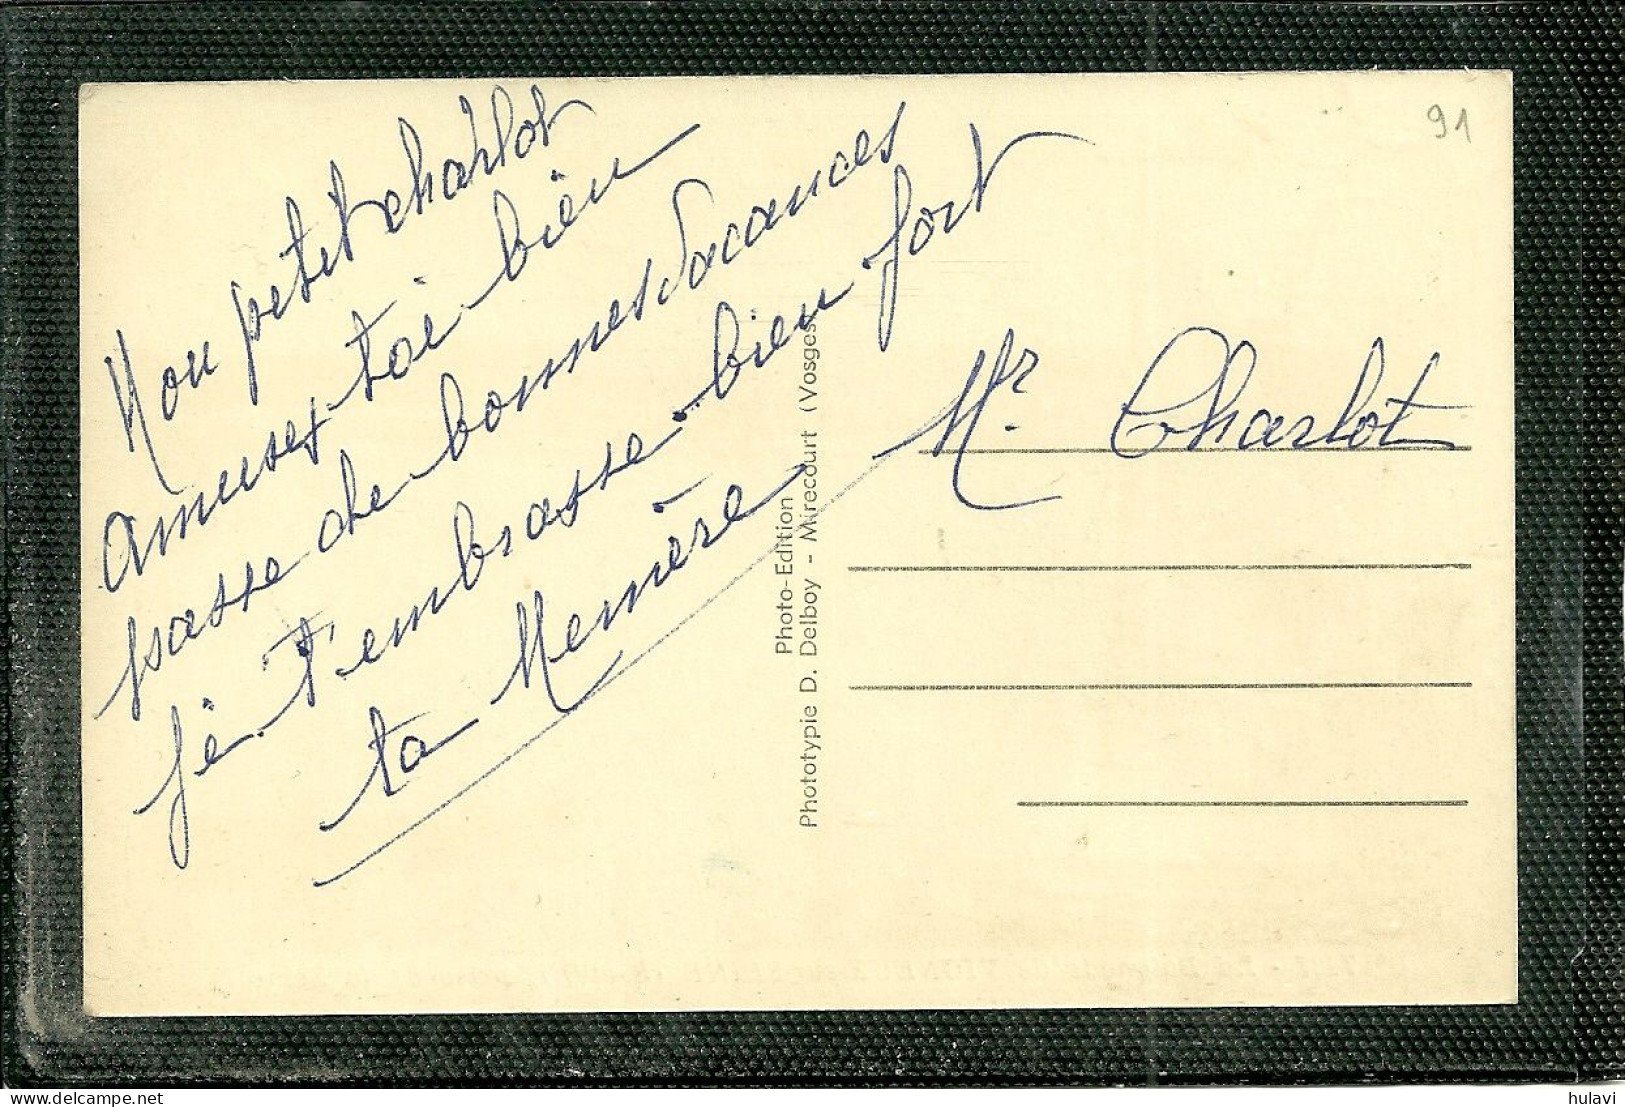 Mon petit charlot
amuses toi bien
passe de bonnes vacances
je t'embrasse bien fort
ta Memère
Photo-Edition
Phototypie D. Delboy - Mirecourt (Vosges)
91
Mr. Charlot
hulavi